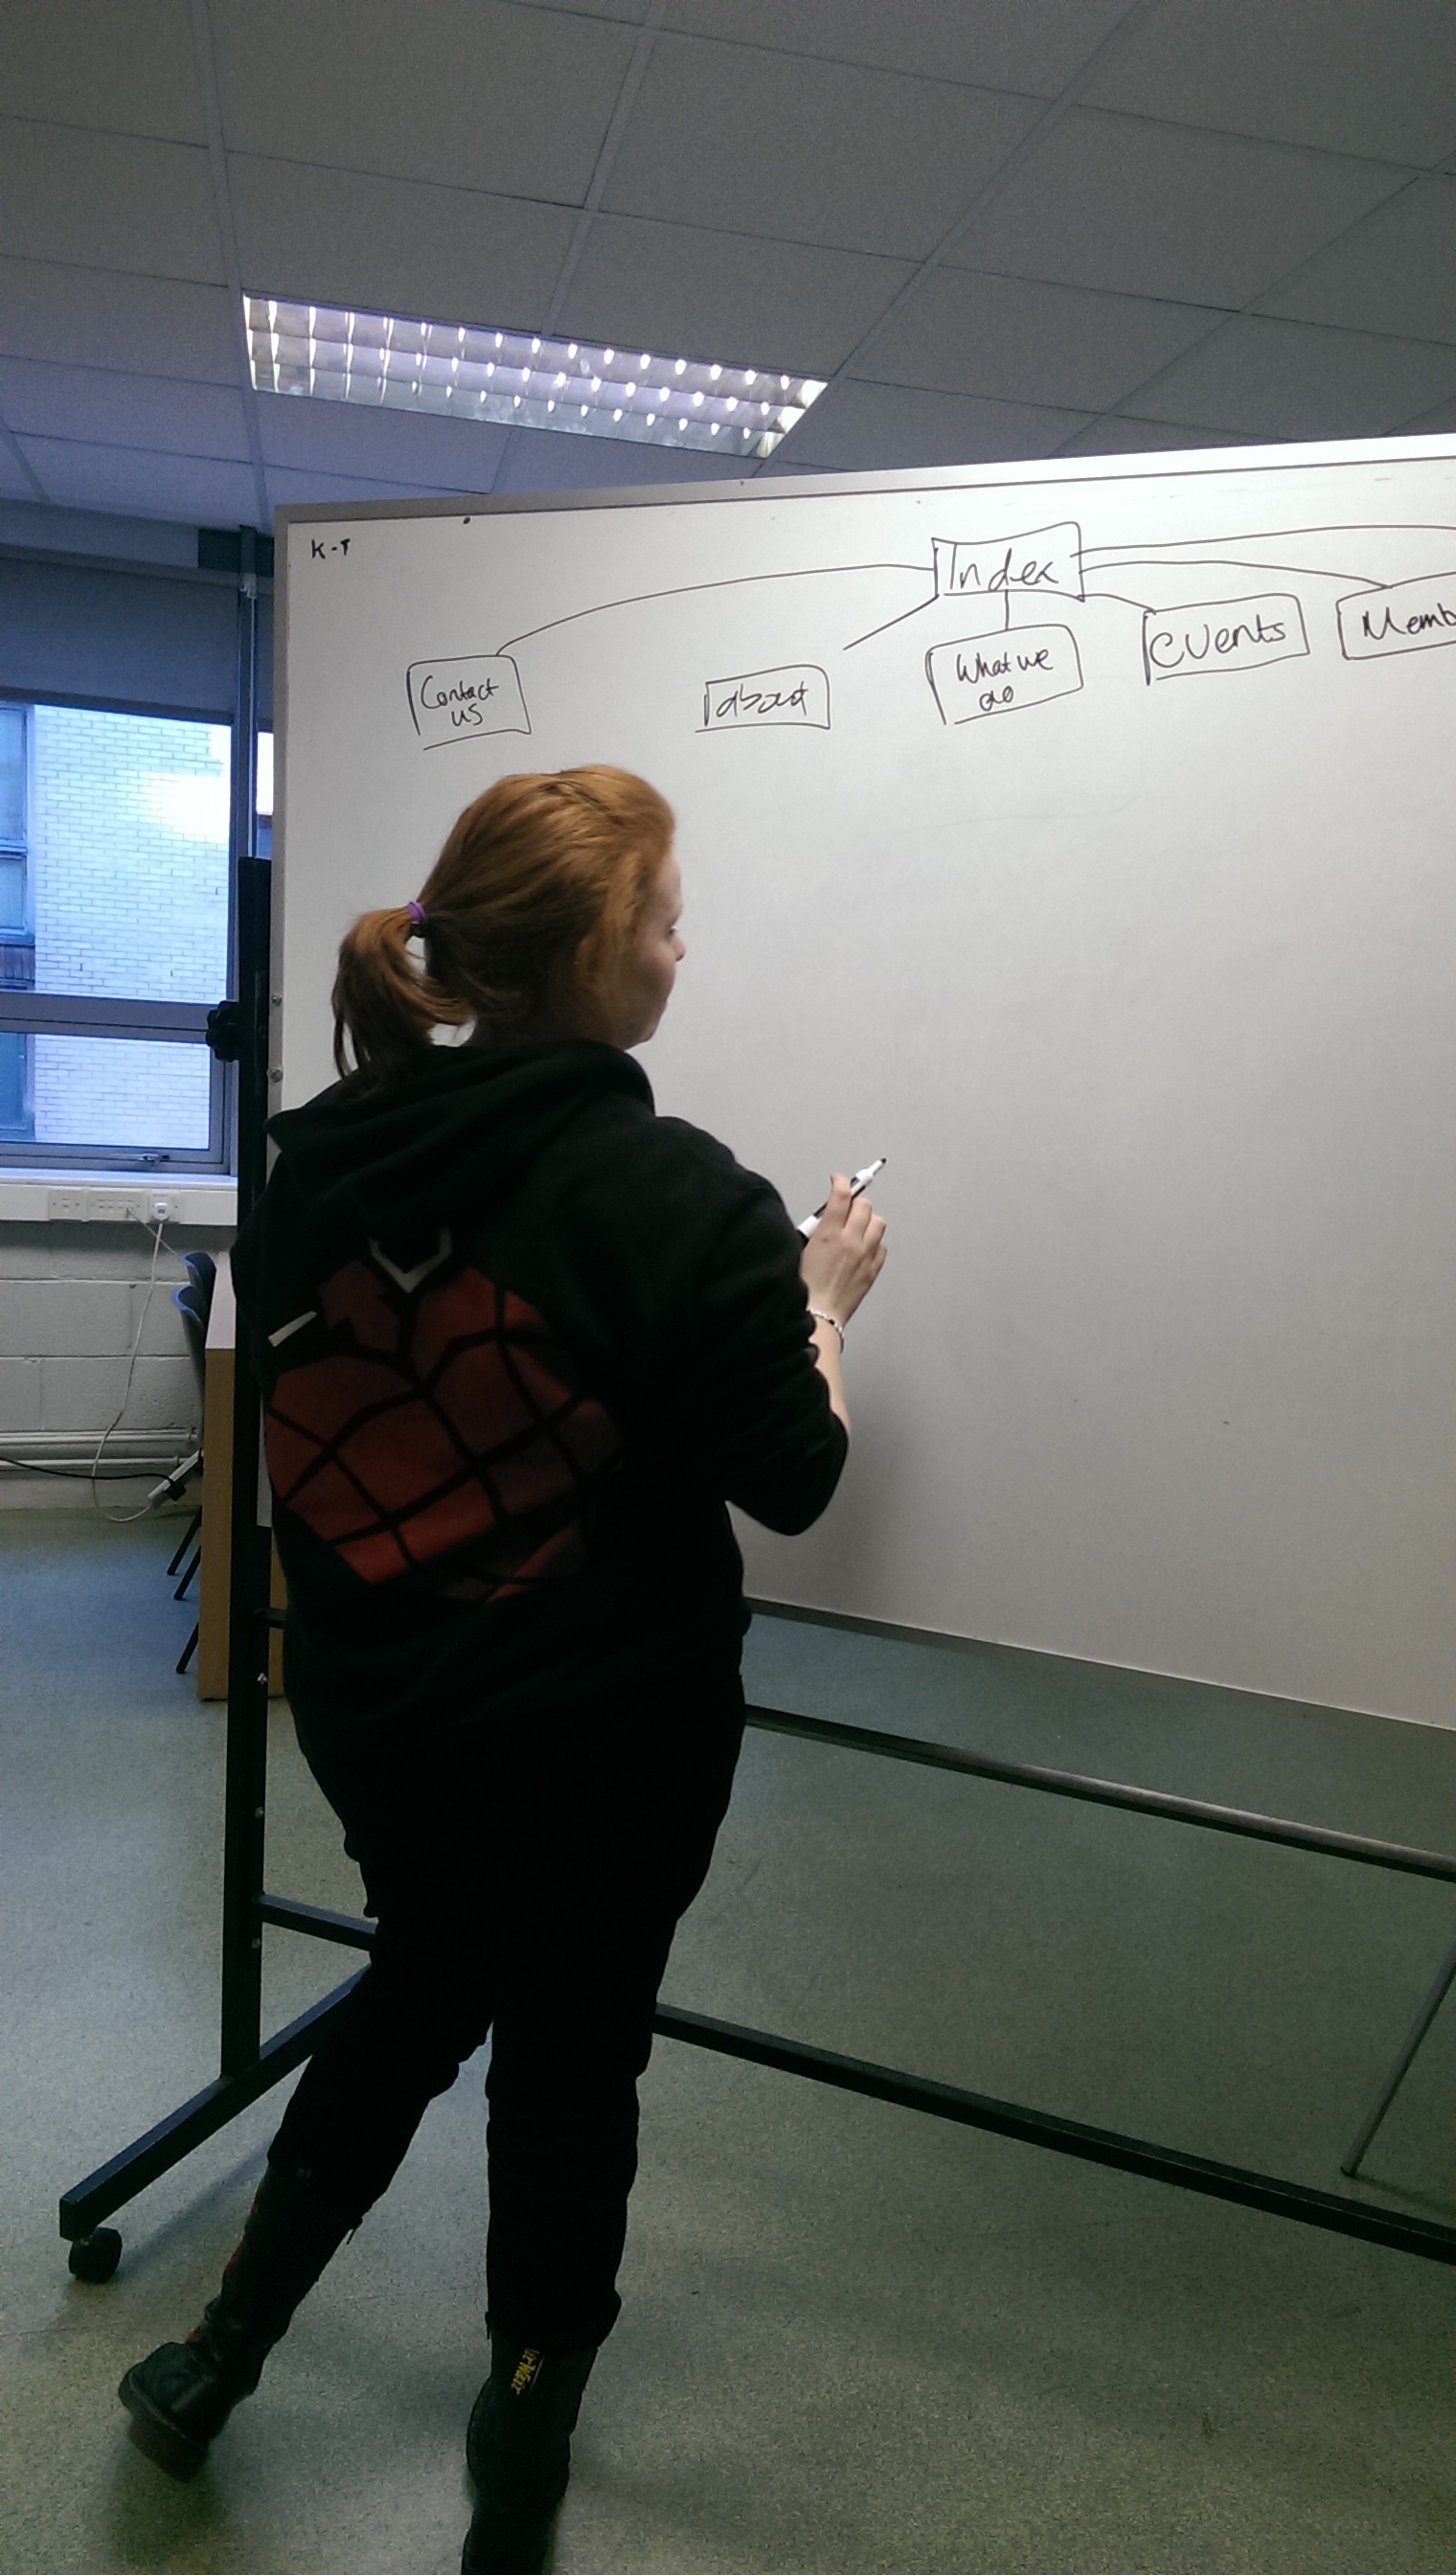 K-T
Index
Contact
us
about
What we
do
events
Memb